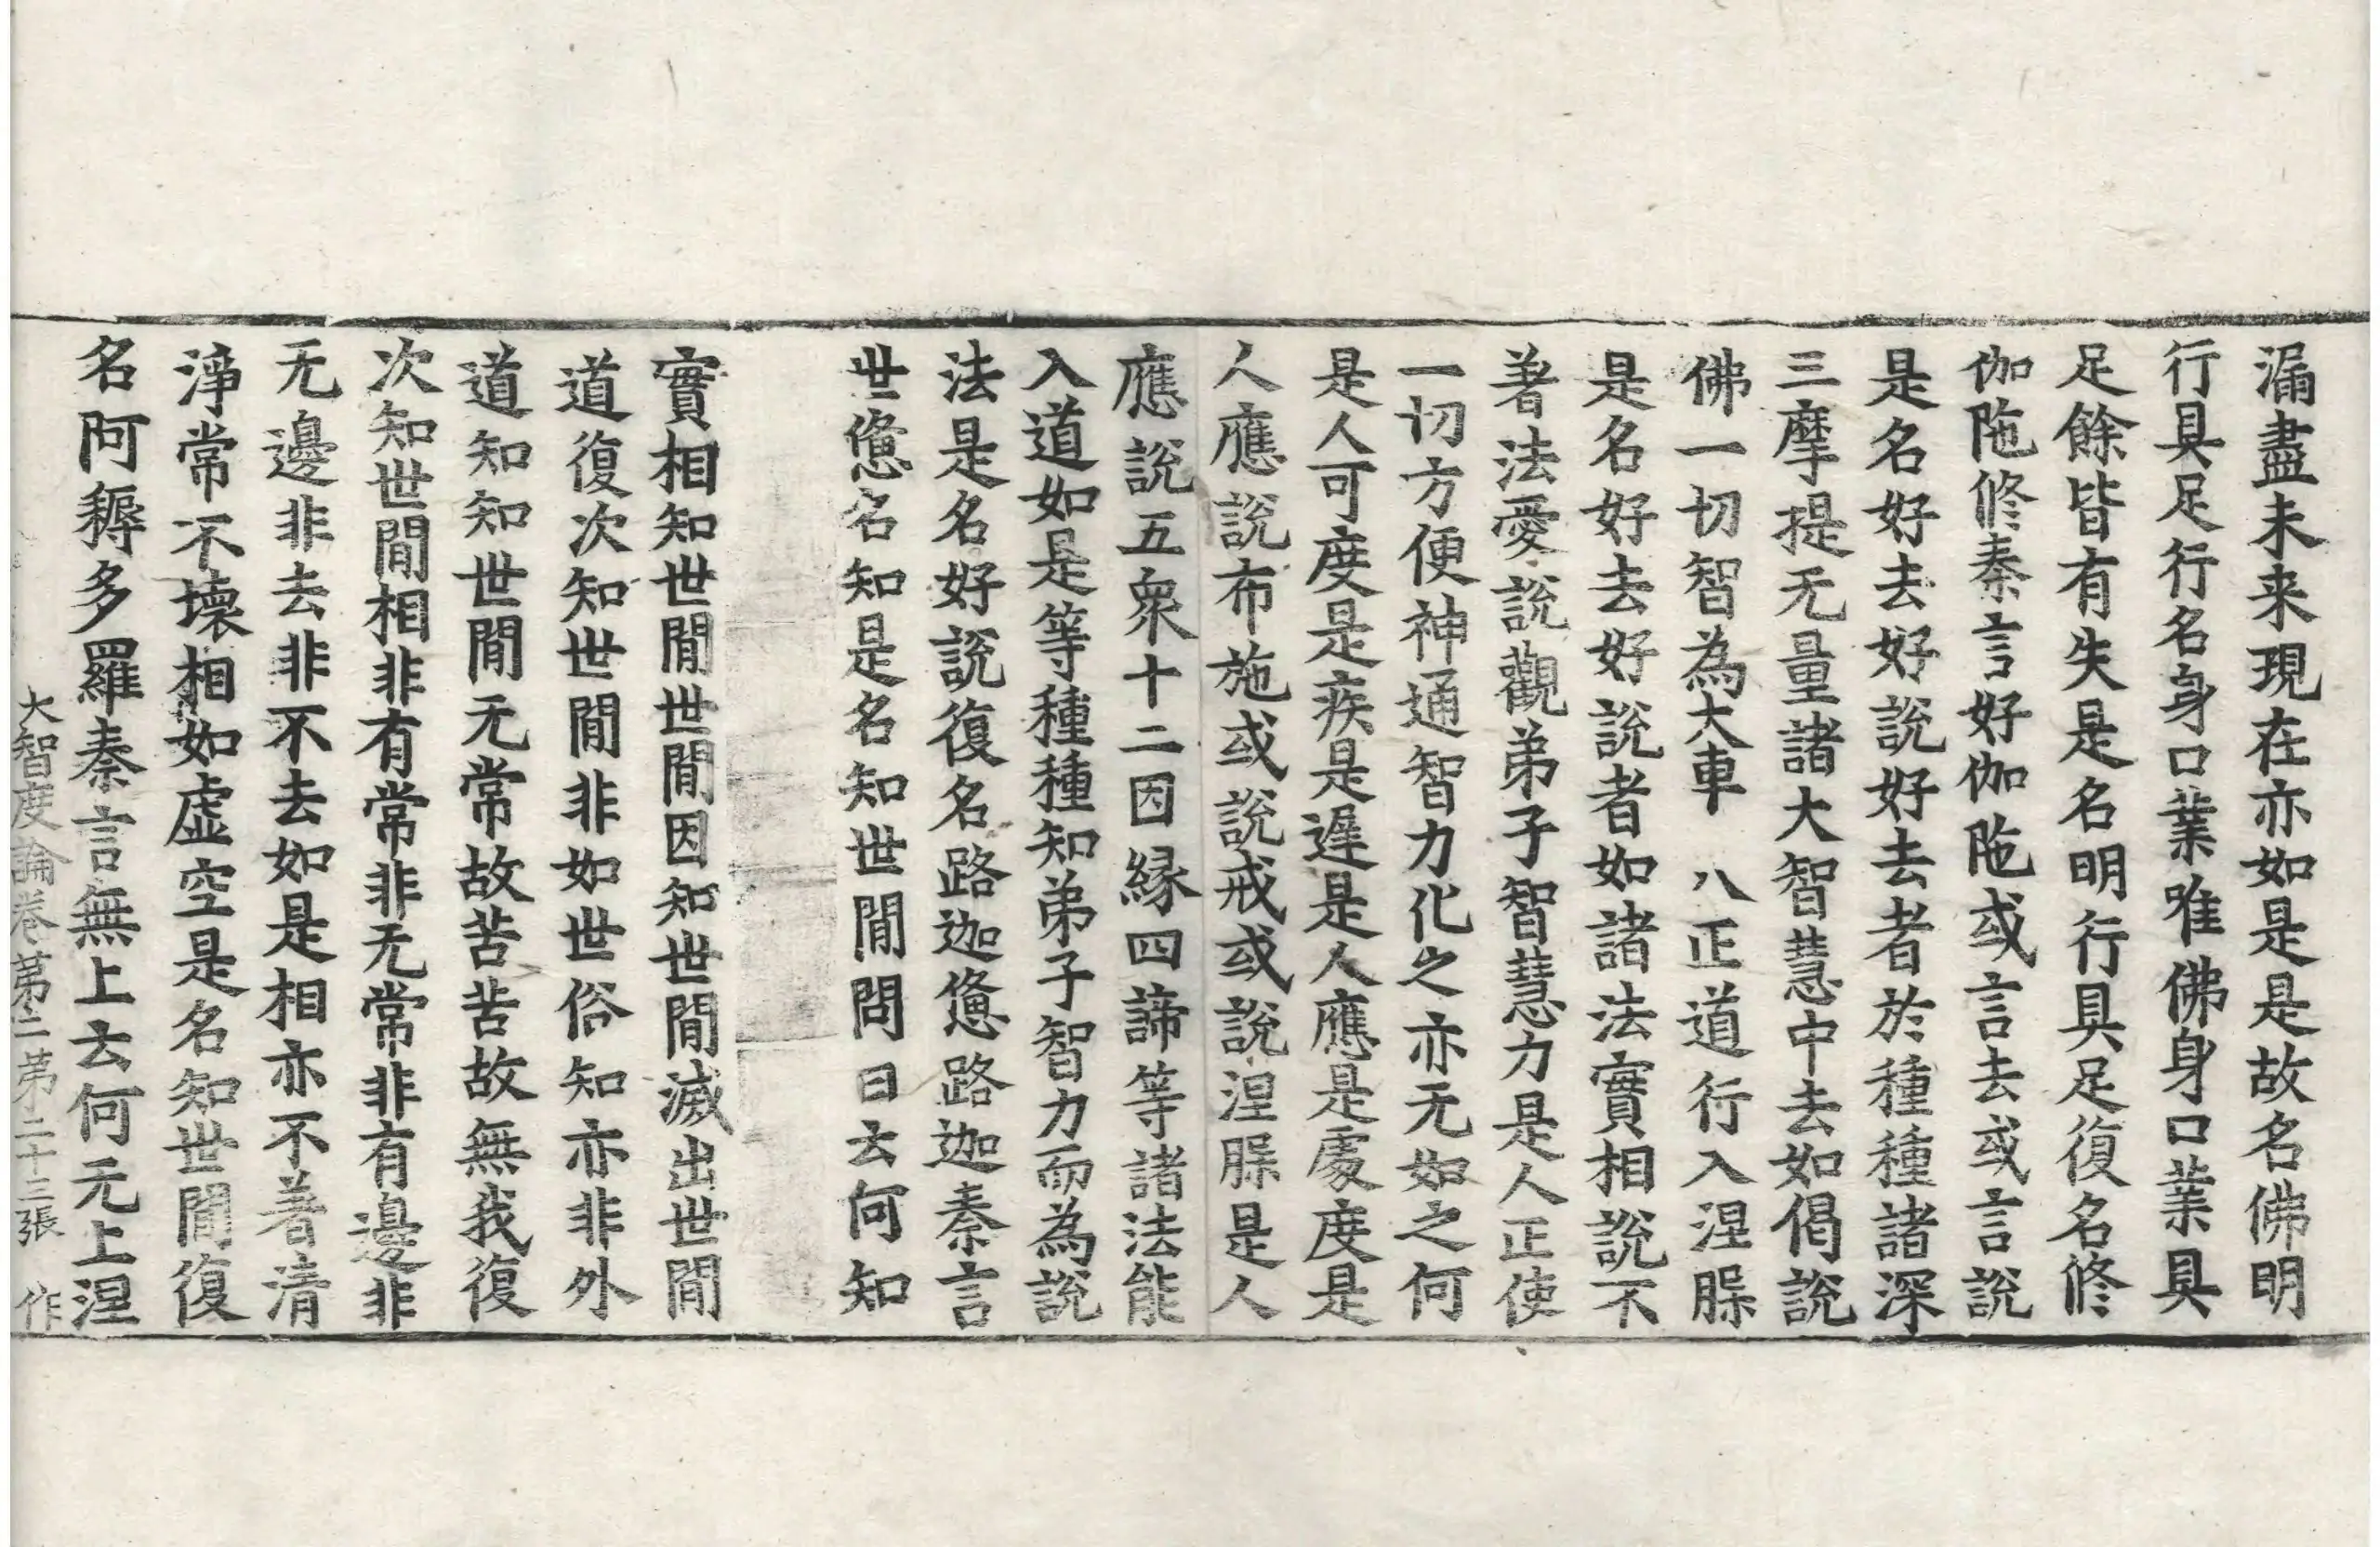 漏盡未来現在亦如是是故名佛明
行具足行名身口業唯佛身口業具
足餘皆有失是名明行具足復名修
伽陁修秦言好伽陁或言去或言說
是名好去好說好去者於種種諸深
三摩提无量諸大智慧中去如偈說
佛一切智為大車　八正道行入涅脲
是名好去好說者如諸法實相說不
著法愛說觀弟子智慧力是人正使
一切方便神通智力化之亦无如之何
是人可度是疾是遲是人應是處度是
人應說布施或說戒或說涅脲是人
應說五衆十二因縁四諦等諸法能
入道如是等種種知弟子智力而為說
法是名好說復名路迦憊路迦秦言
世憊名知是名知世間問曰云何知
實相知世間世間因知世間滅出世間
道復次知世間非如世俗知亦非外
道知知世間无常故苦苦故無我復
次知世間相非有常非无常非有邊非
无邊非去非不去如是相亦不著清
淨常不壞相如虛空是名知世間復
名阿耨多羅秦言無上云何无上涅
大智度論卷第二第二十三張　作